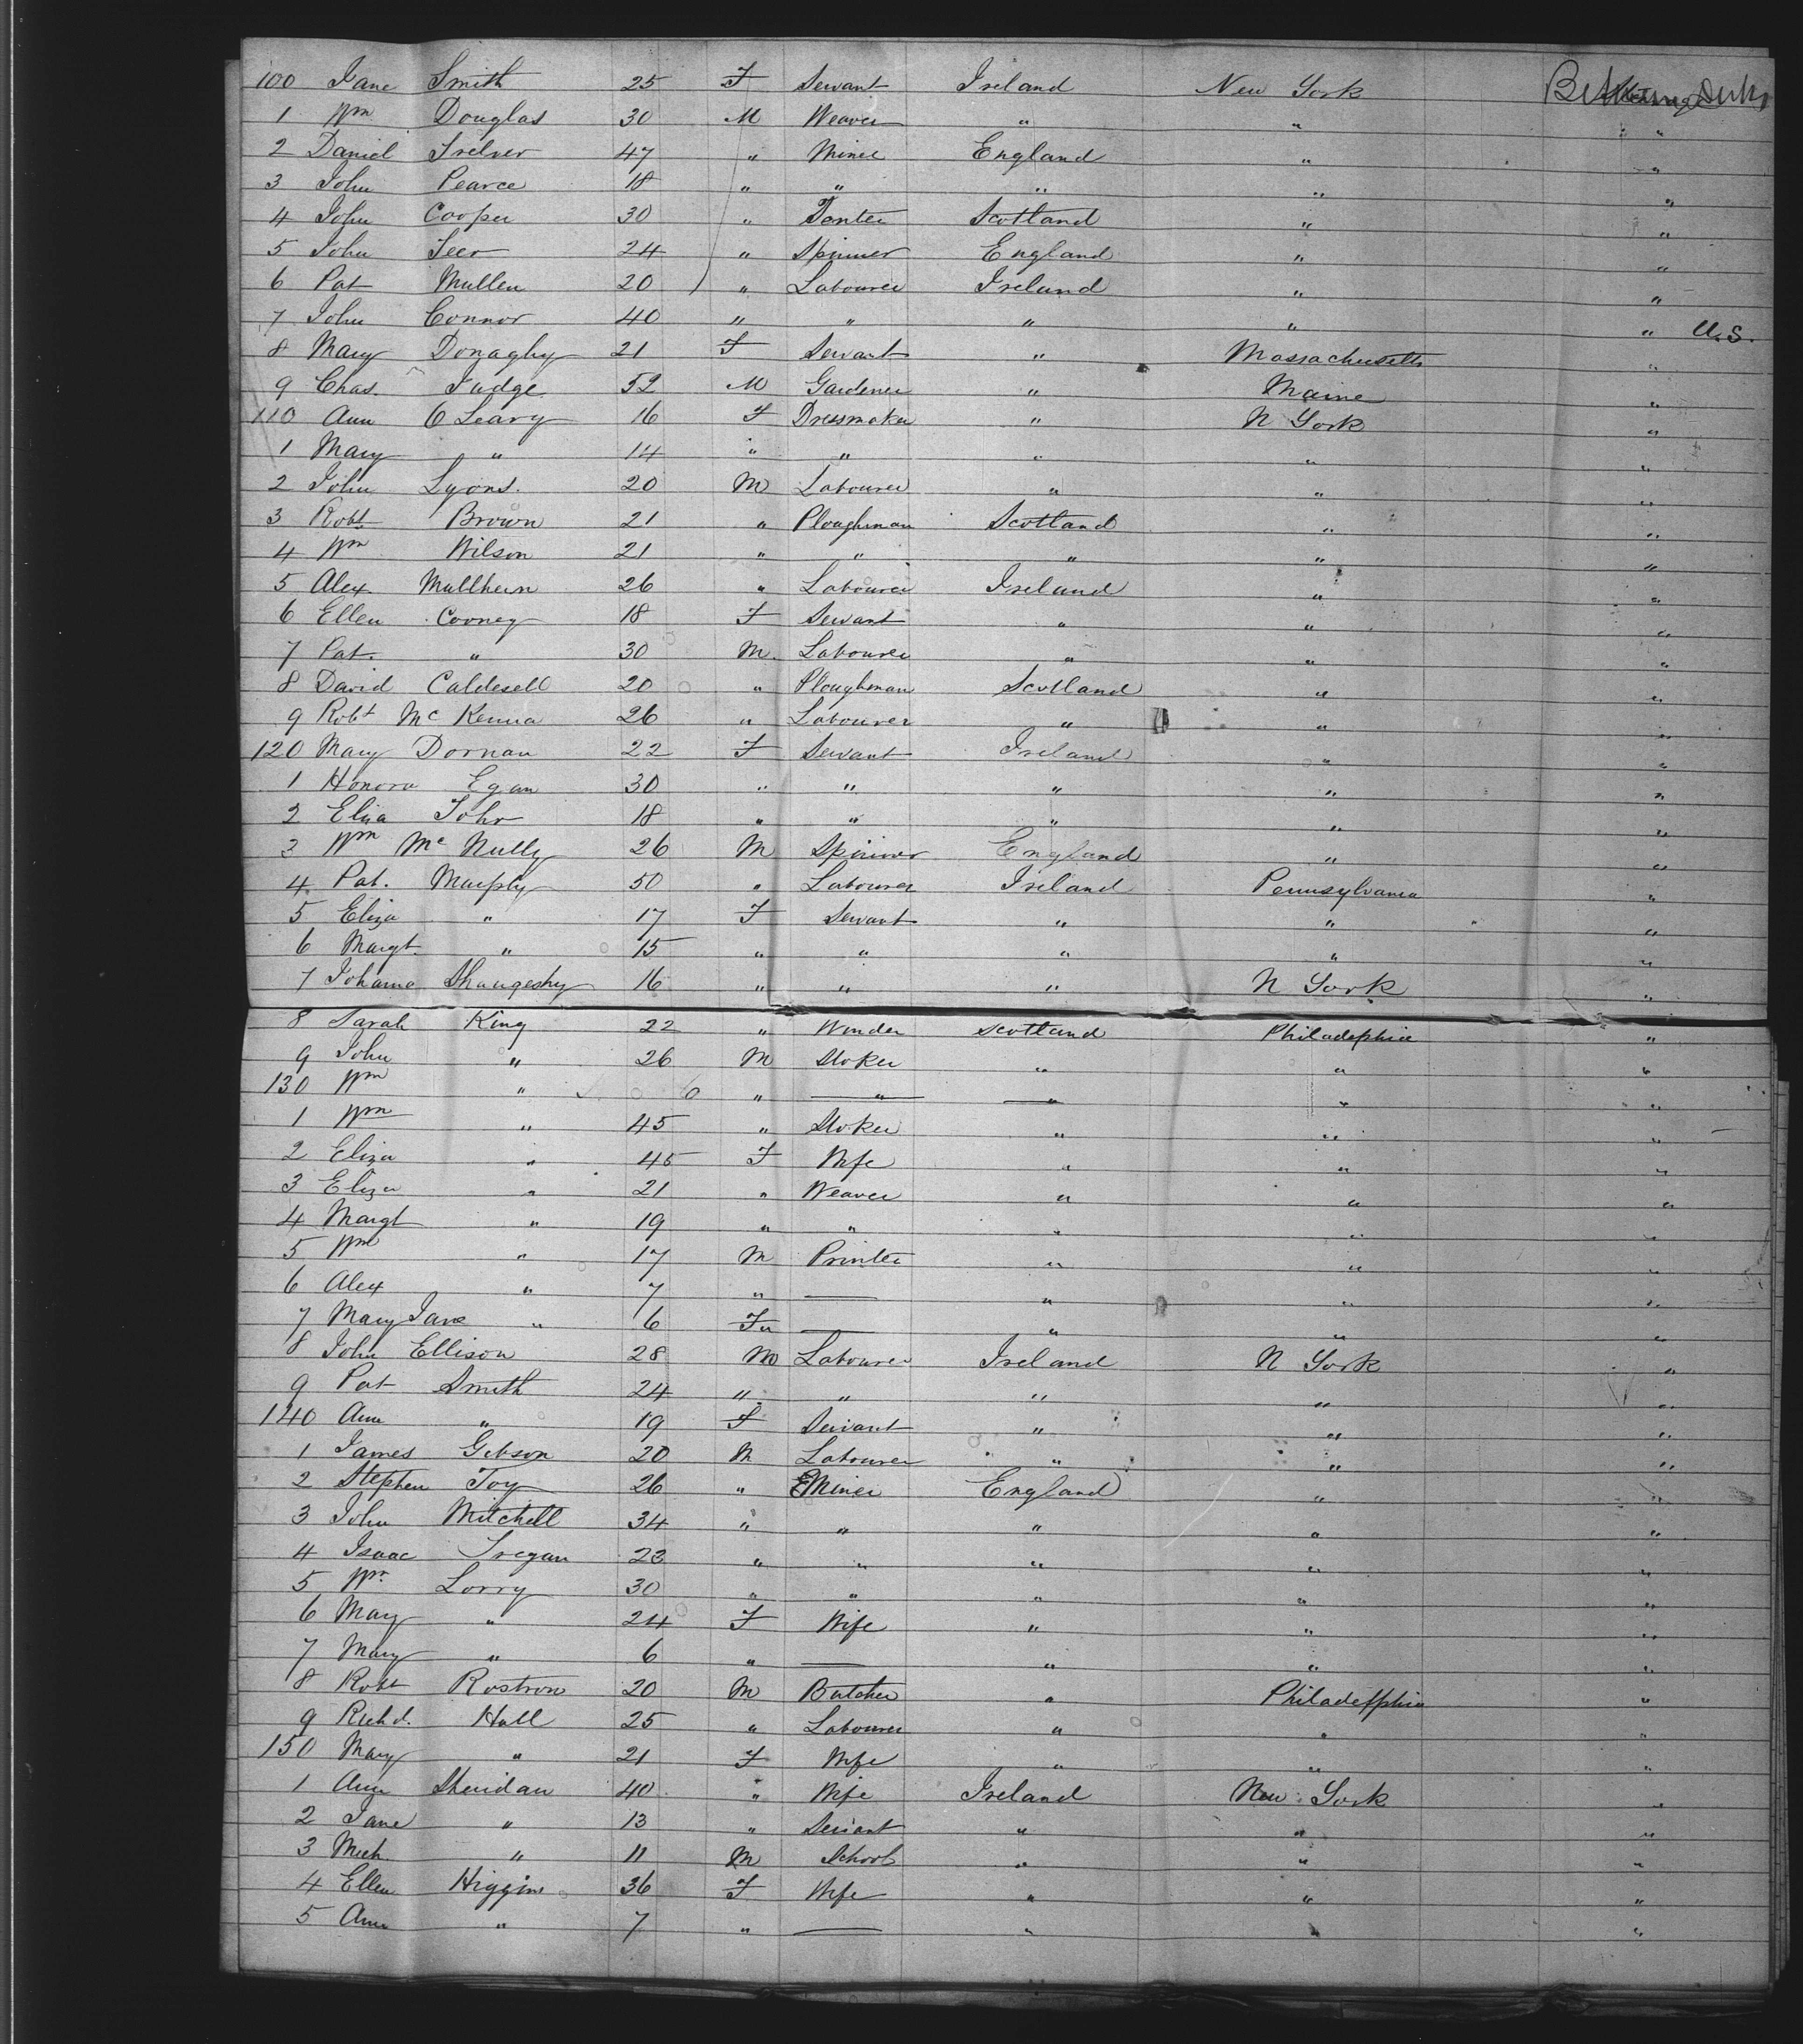 100 Jane Smith 25 F Servant Ireland New York Between Decks
1 Wm Douglas 30 M Weaver " " "
2 Daniel 47 " Miner England " "
3 John Pearce 18 " " " " "
4 John Cooper 30 " Scotland " "
5 John 24 " Spinner England " "
6 Pat Mullen 20 " Labourer Ireland " "
7 John Connor 40 " " " " " U.S.
8 Mary Donaghy 21 F Servant " Massachusetts "
9 Chas. Judge 52 M Gardener " Maine "
110 Ann O Leary 16 F Dressmaker " N York "
1 Mary " 14 " " " " "
2 John Lyons. 20 M Labourer " " "
3 Robt Brown 21 " Ploughman Scotland " "
4 Wm Wilson 21 " " " " "
5 Alex Mullhern 26 " Labourer Ireland " "
6 Ellen Cooney 18 F Servant " " "
7 Pat. " 30 M. Labourer " " "
8 David Caldesell 20 " Ploughman Scotland " "
9 Robt Mc Kenna 26 " Labourer " " "
120 Mary Dornan 22 F Servant Ireland " "
1 Honora Egan 30 " " " " "
2 Eliza 18 " " " " "
3 Wm Mc Nully 26 M Spinner England " "
4 Pat. Murphy 50 " Labourer Ireland Pennsylvania "
5 Eliza " 17 F Servant " " "
6 Margt. " 15 " " " " "
7 Johanna 16 " " " N York "
8 Sarah King 22 " Winder Scotland Philadephia "
9 John " 26 M Stoker " " "
130 Wm " 6 " " " " "
1 Wm " 45 " Stoker " " "
2 Eliza " 45 F Wife " " "
3 Eliza " 21 " Weaver " " "
4 Margt " 19 " " " " "
5 Wm " 17 M Printer " " "
6 Alex " 7 " — " " "
7 Mary Jane " 6 F " — " " "
8 John Ellison 28 M Labourer Ireland N York "
9 Pat Smith 24 " " " " "
140 Ann " 19 F Servant " " "
1 James Gibson 20 M Labourer " " "
2 Stephen Toy 26 " Miner England " "
3 John Mitchell 34 " " " " "
4 Isaac Tregan 23 " " " " "
5 Wm Lorry 30 " " " " "
6 Mary " 24 F Wife " " "
7 Mary " 6 " — " " "
8 Robt Rostron 20 M Butcher " Philadelphia "
9 Richd. Hall 25 " Labourer " " "
150 Mary " 21 F Wife " " "
1 Ann Sheridan 40 " Wife Ireland New York "
2 Jane " 13 " Servant " " "
3 Mich " 11 M School " " "
4 Ellen Higgins 36 F Wife " " "
5 Ann " 7 " — " " "